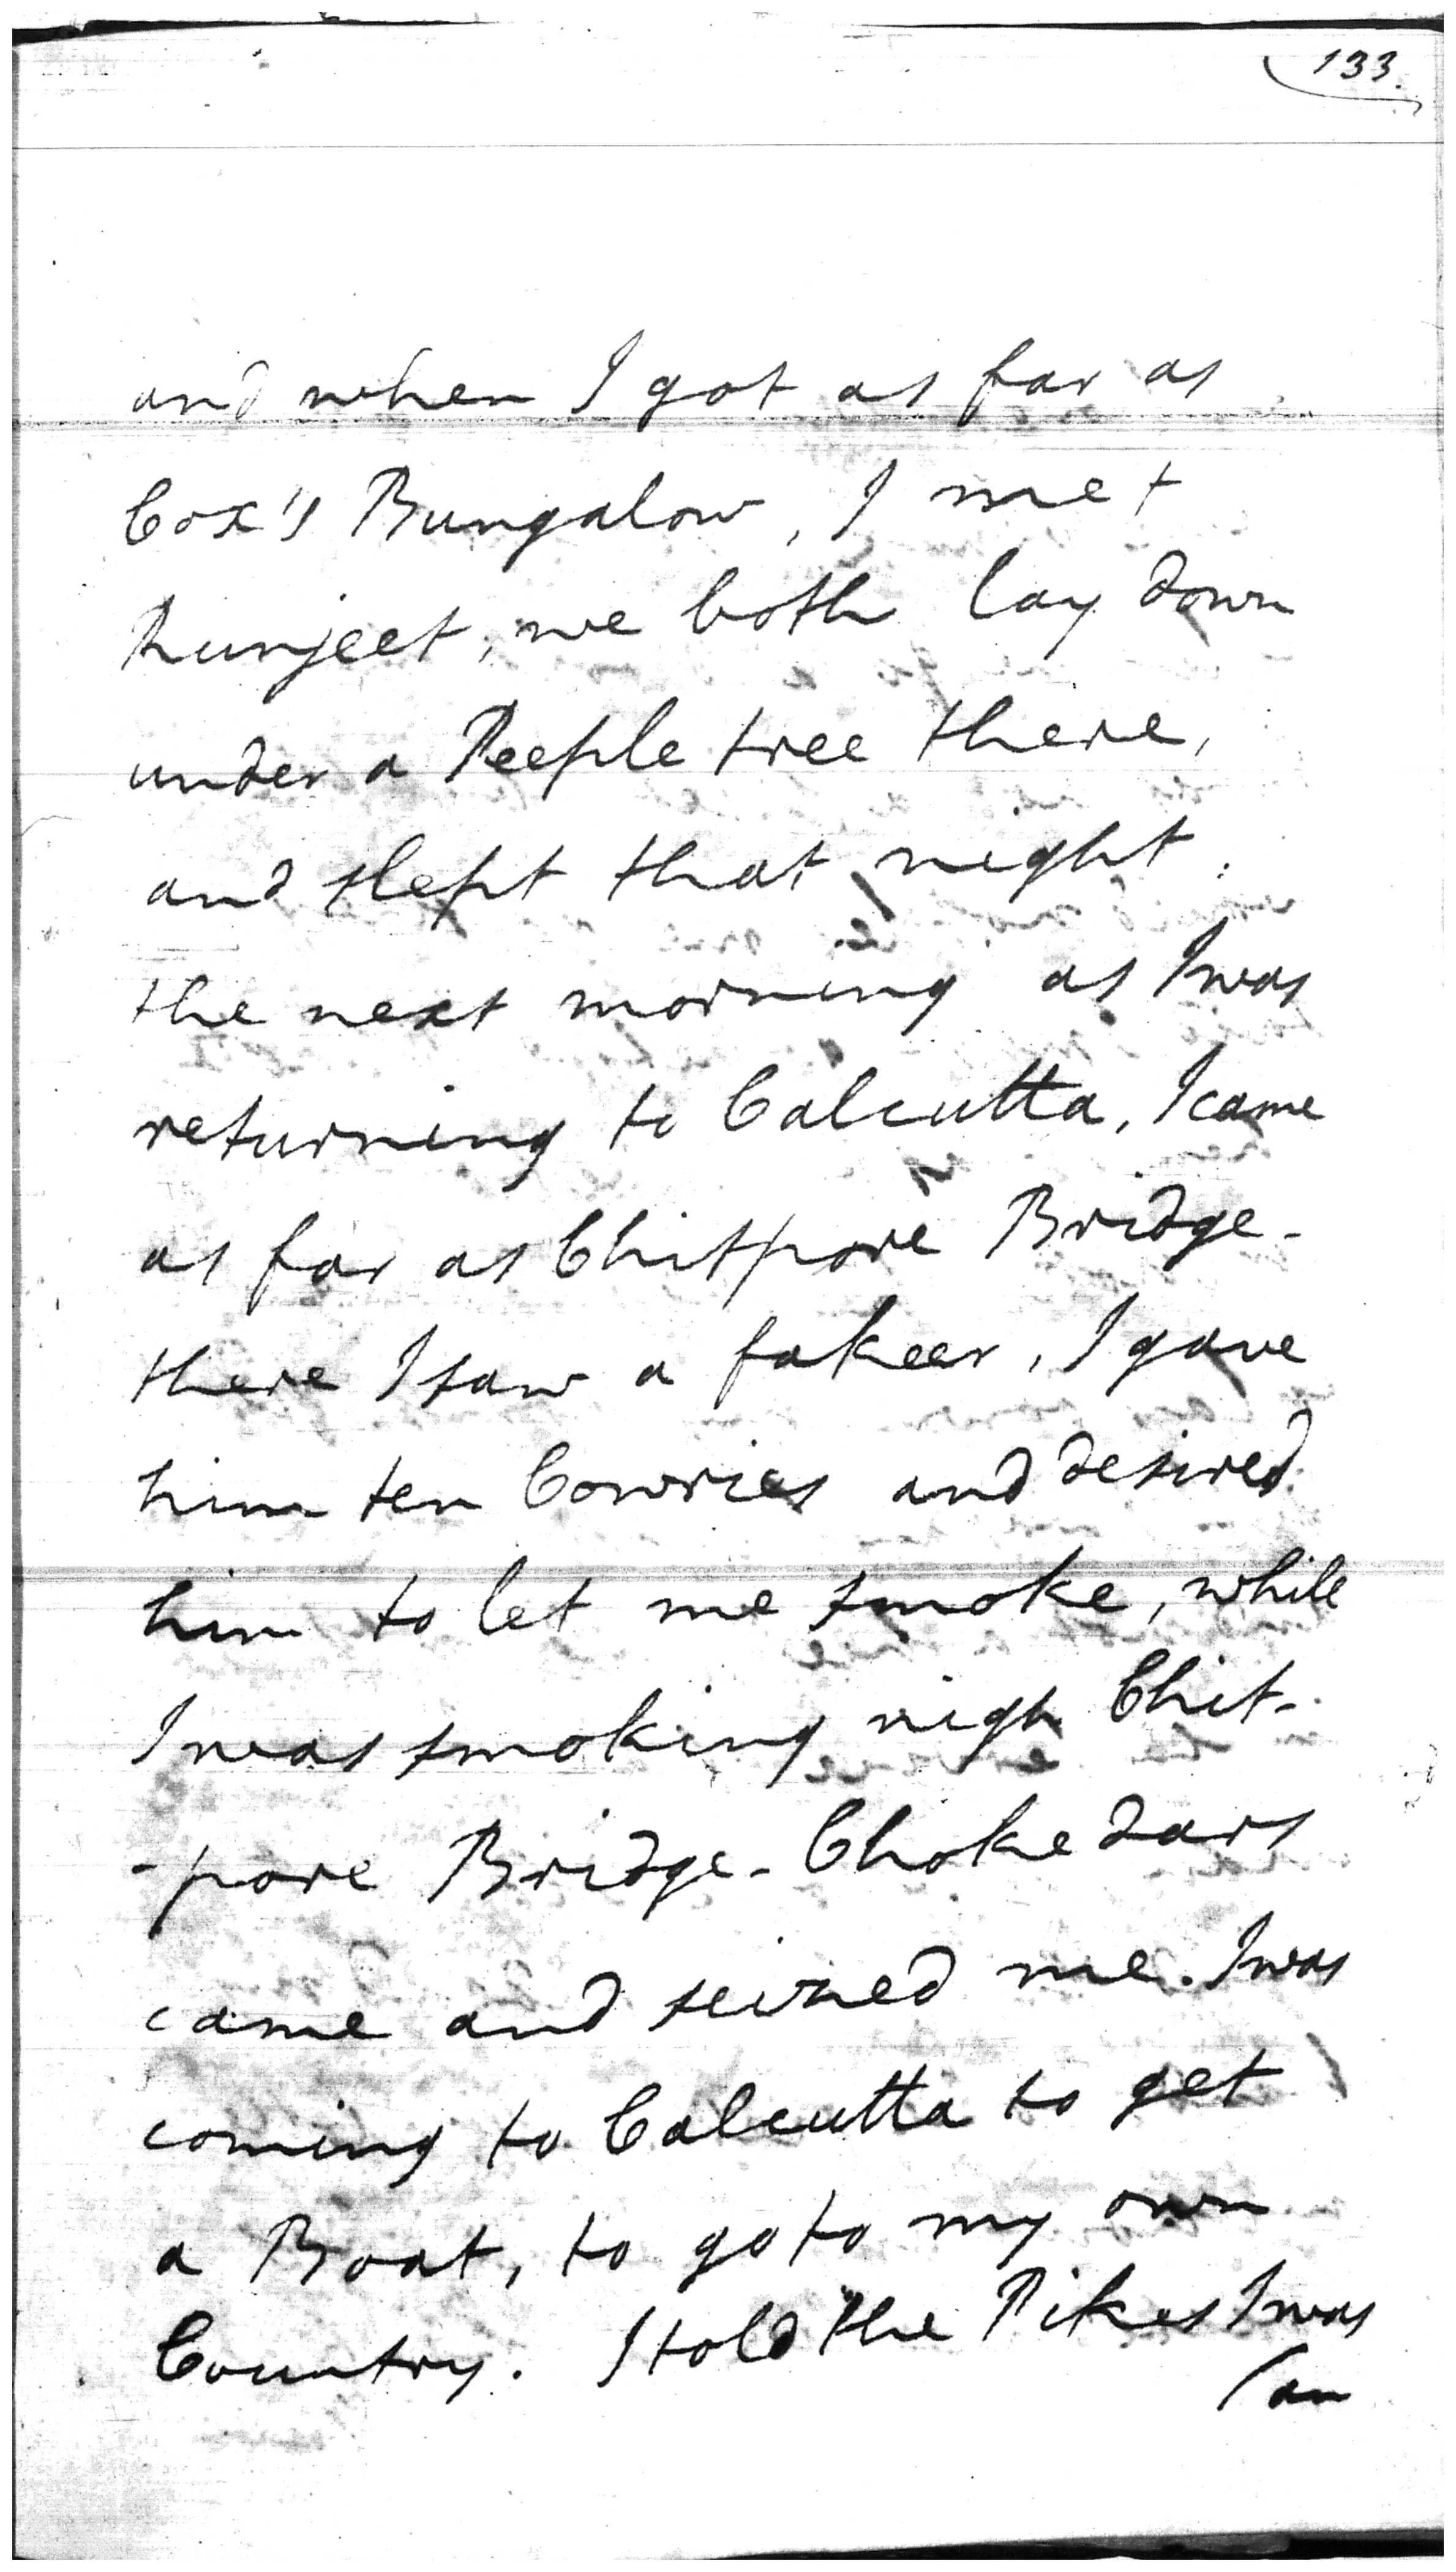 133.
and when I got as far as
Cox's Bungalow, I met
Runjeet, we both lay down
under a Peeple tree there,
and slept that night.
the next morning as I was
returning to Calcutta, I came
as far as Chitpore Bridge-
there I saw a fakeer, I gave
him ten Cowries and desired
him to let me smoke, while
I was smoking nigh Chit-
-pore Bridge- Chokedars
came and seized me. I was
coming to Calcutta to get
a Boat, to go to my own
Country. I told the Pikes I was
(an